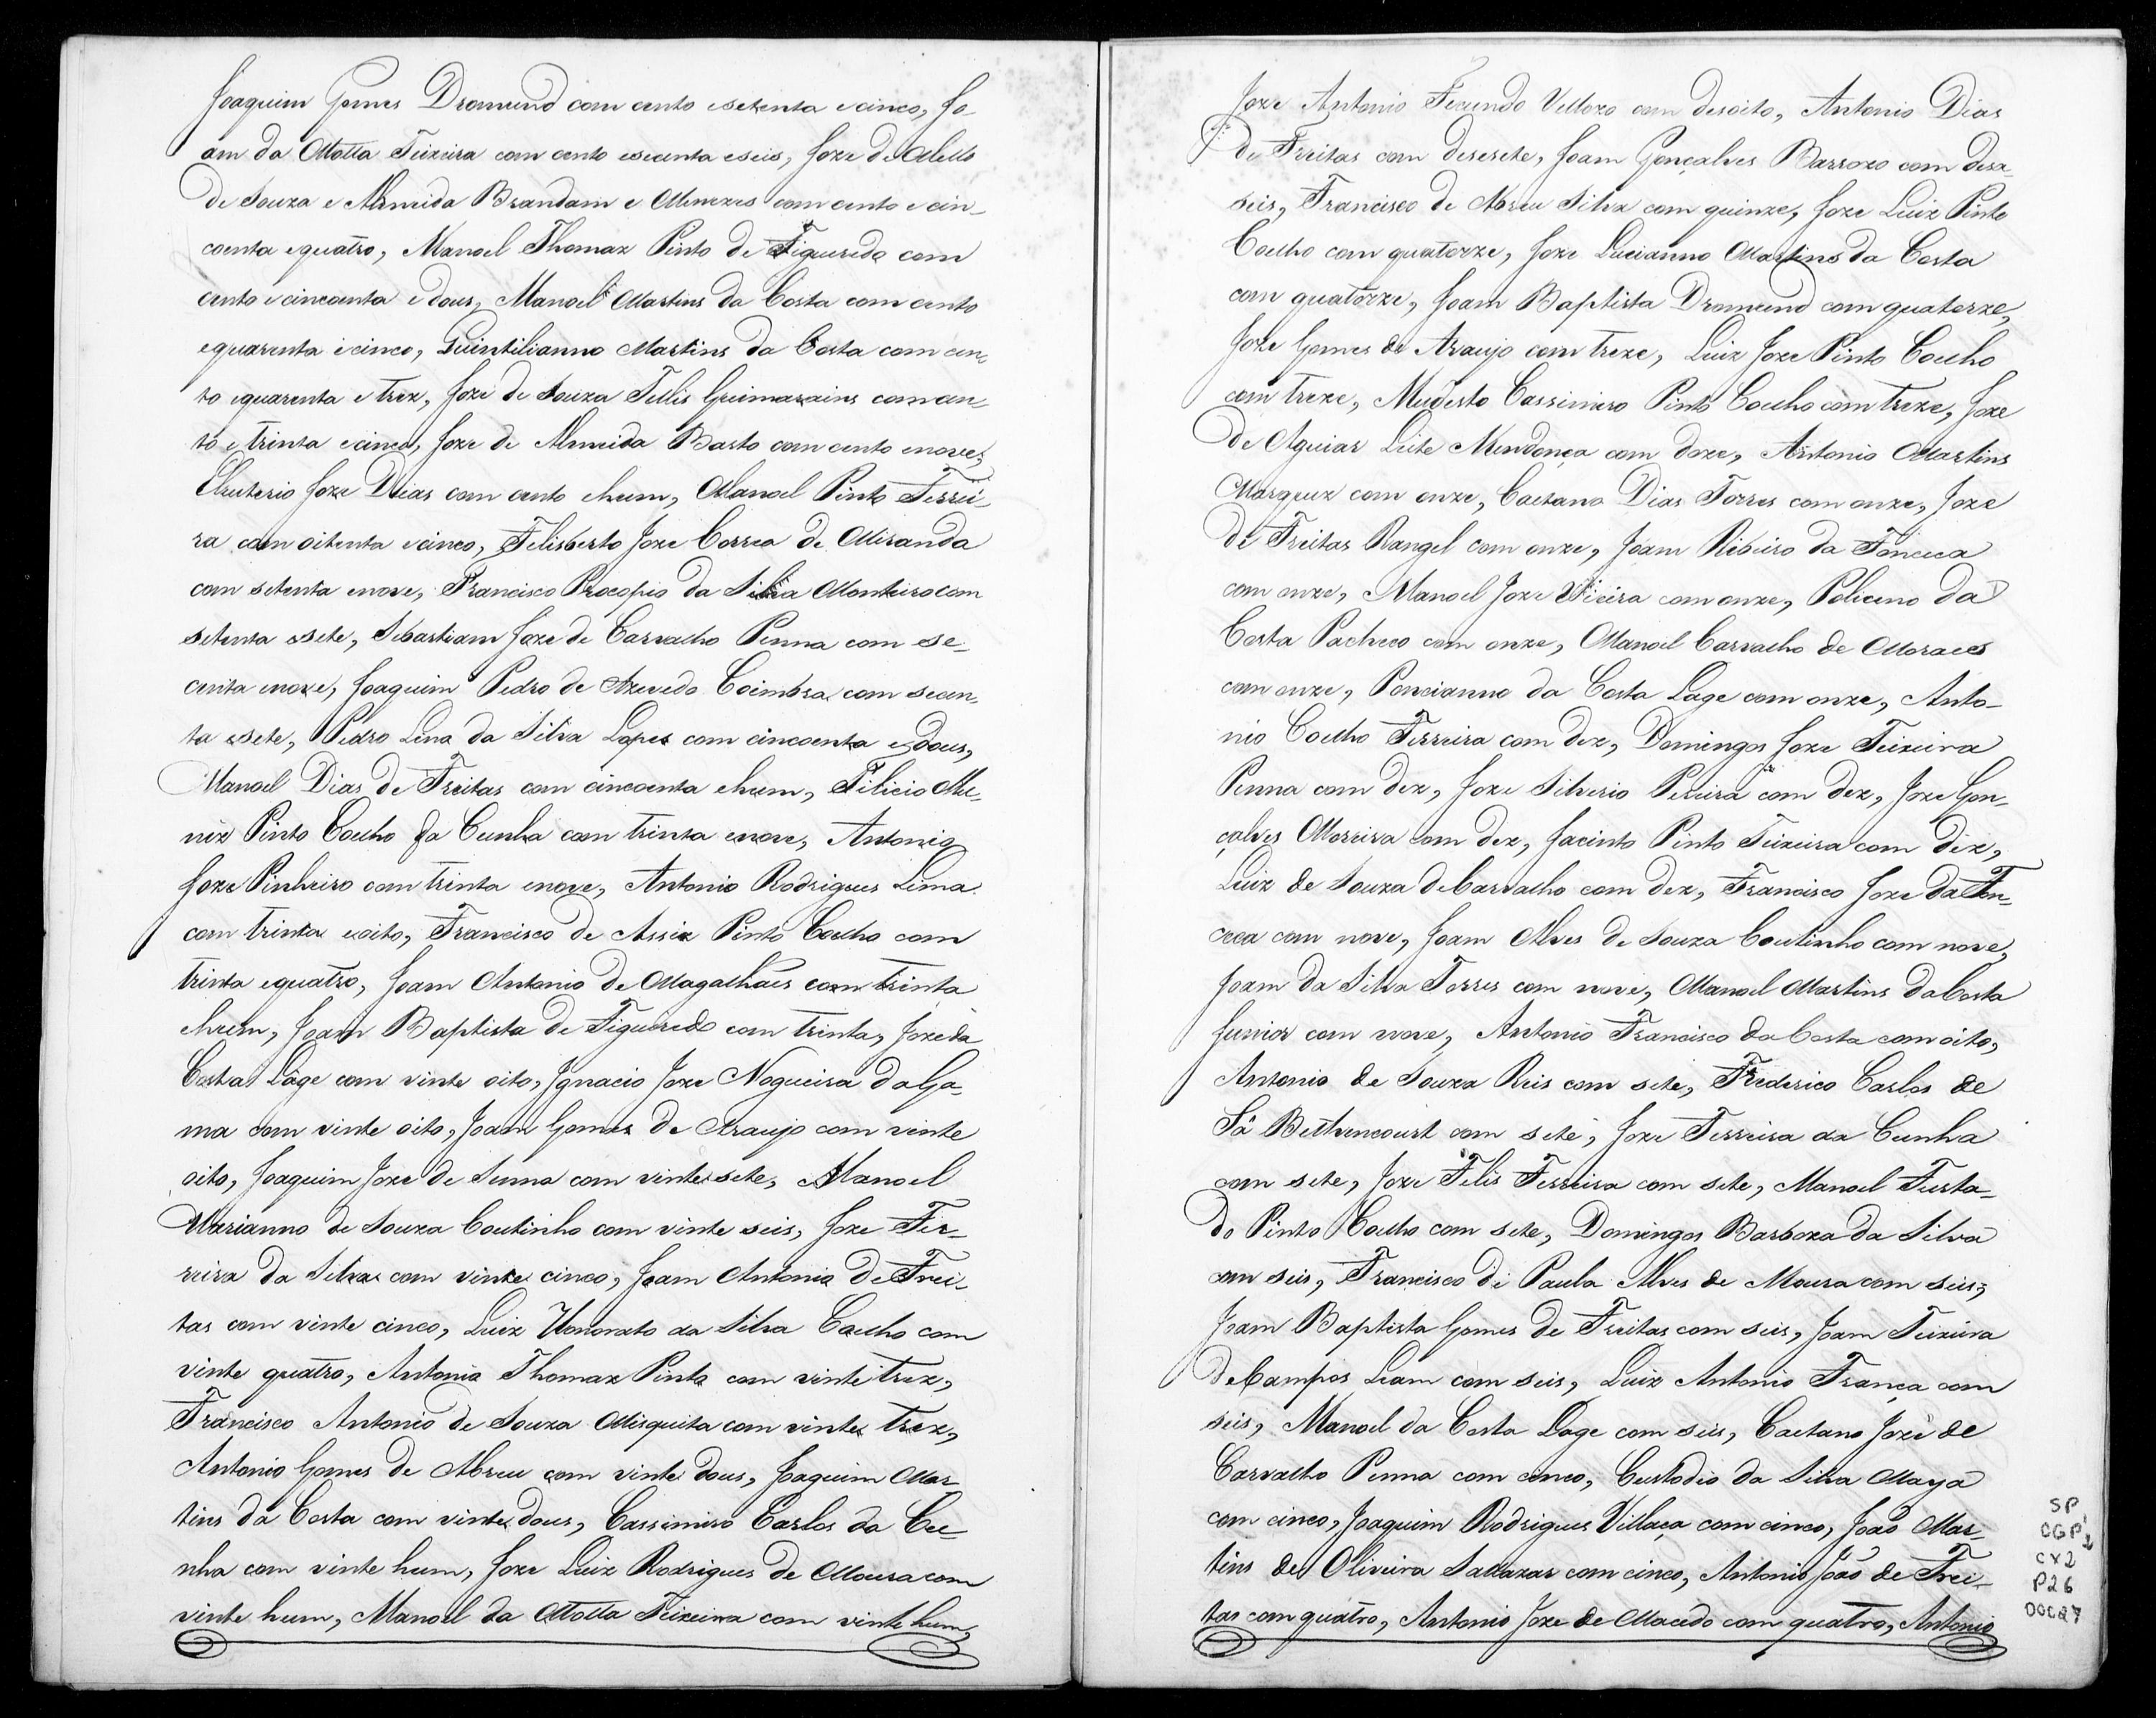 Joaquim Gomes Dromund com cento esetenta ecinco, Jo-
am da Motta Teixeira com cento esecenta eseis, Joze de Mello
de Souza e Almeida Brandam e Menezes com cento e cin-
coenta equatro, Manoel Thomaz Pinto de Figueredo com
cento ecincoenta e dous, Manoel Martins da Costa com cento
equarenta ecinco, Quintilianno Martins da Costa com cen-
to equarenta e trez, Joze de Souza Tellis Guimarains com cen-
to e trinta ecinco, Joze de Almeida Barto com cento enove,
Eleuterio Joze Dias com cento ehum, Manoel Pinto Ferrei-
ra com oitenta ecinco, Felisberto Joze Correa de Miranda
com setenta enove, Francisco Procopio da Silva Monteiro com
setenta esete, Sebastiam Joze de Carvalho Penna com se-
centa enove, Joaquim Pedro de Azevedo Coimbra com secen-
ta esete, Pedro Lina da Silva Lopes com cincoenta edous,
Manoel Dias de Freitas com cincoenta ehum, Felicio Mu-
niz Pinto Coelho da Cunha com trinta enove, Antonio
Joze Pinheiro com trinta enove, Antonio Rodrigues Lima
com trinta eoito, Francisco de Assiz Pinto Coelho com
trinta equatro, Joam Antonio de Magalhães com trinta
ehum, Joam Baptista de Figueredo com trinta, Joze da
Costa Lage com vinte oito, Ignacio Joze Nogueira da Ga-
ma com vinte oito, Joam Gomes de Araujo com vinte
oito, Joaquim Joze de Senna com vinte sete, Manoel
Marianno de Souza Coutinho com vinte seis, Joze Fer-
reira da Silva com vinte cinco, Joam Antonio de Frei-
tas com vinte cinco, Luiz Honorato da Silva Coelho com
vinte quatro, Antonio Thomaz Pinto com vinte trez,
Francisco Antonio de Souza Misquita com vinte trez,
Antonio Gomes de Abreu com vinte dous, Joaquim Mar-
tins da Costa com vinte dous, Cassimiro Carlos da Cu-
nha com vinte hum, Joze Luiz Rodrigues de Moura com
vinte hum, Manoel da Motta Teixeira com vinte hum,
Joze Antonio Vellozo com desoito, Antonio Dias
de Freitas com desesete, Joam Gonçalves Barrozo com deza-
seis, Francisco de Abreu Silva com quinze, Joze Luiz Pinto
Coelho com quatorze, Joze Lucianno Martins da Costa
com quatorze, Joam Baptista Dromund com quatorze,
Joze Gomes de Araujo com treze, Luiz Joze Pinto Coelho
com treze, Modesto Cassimero Pinto Coelho com treze, Joze
de Aguiar Leite Mendonça com doze, Antonio Martins
Marquez com onze, Caetano Dias Torres com onze, Joze
de Freitas Rangel com onze, Joam Ribeiro da Fonceca
com onze, Manoel Joze Vieira com onze, Policeno da
Costa Pacheco com onze, Manoel Carvalho de Moraes
com onze, Poncianno da Costa Lage com onze, Anto-
nio Coelho Ferreira com dez, Domingos Joze Teixeira
Penna com dez, Joze Silverio Pereira com dez, Joze Gon-
çalves Moreira com dez, Jacinto Pinto Teixeira com dez,
Luiz de Souza de Carvalho com dez, Francisco Joze da Fon-
ceca com nove, Joam Alves de Souza Coutinho com nove,
Joam da Silva Torres com nove, Manoel Martins da Costa
Junior com nove, Antonio Francisco da Costa com oito,
Antonio de Souza Reis com sete, Frederico Carlos de
Sá Bethencourt com sete, Joze Ferreira da Cunha
com sete, Joze Felis Ferreira com sete, Manoel Furta-
do Pinto Coelho com sete, Domingos Barboza da Silva
com seis, Francisco de Paula Alves de Moura com seis,
Joam Baptista Gomes de Freitas com seis, Joam Teixeira
de Campos Leam com seis, Luiz Antonio França com
seis, Manoel da Costa Lage com seis, Caetano Joze de
Carvalho Penna com cinco, Custodio da Silva Maya
com cinco, Joaquim Rodrigues Villaça com cinco, João Mar-
tins de Oliveira Sallazar com cinco, Antonio João de Frei-
tas com quatro, Antonio Joze de Macedo com quatro, Antonio
SP
CGP 1/2
CX2
P26
DOC27